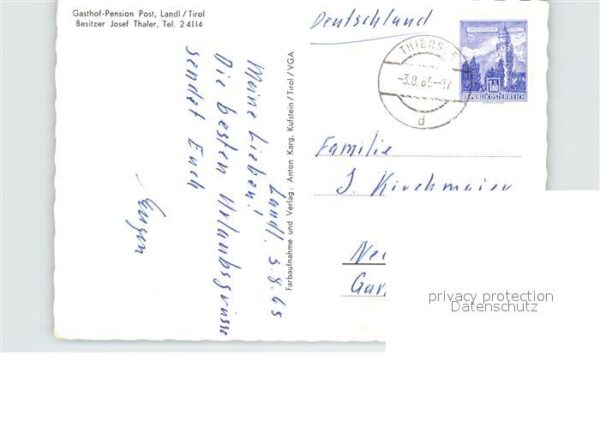 Gasthof-Pension Post, Landl/Tirol
Besitzer Josef Thaler, Tel. 24114
Landl, 3.8.65
Meine Lieben!
Die besten Urlaubsgrüsse
sendet Euch
Eugen
Farbaufnahme und Verlag: Anton Karg, Kufstein/Tirol/VGA
Deutschland
THIERS
-3.8.65-17
d
REPUBLIK ÖSTERREICH
Familie
J. Kirchmaier
privacy protection
Datenschutz